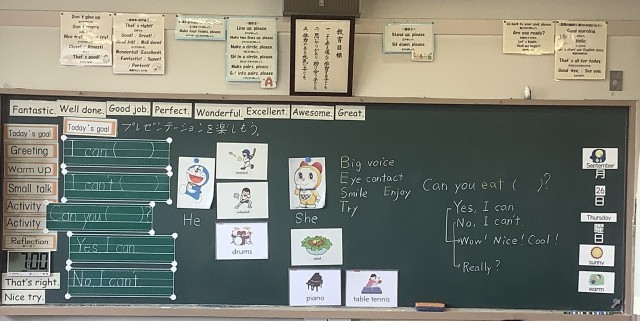 Don't give up.
Don't mind.
Nice try!
Close! Almost!
That's right!
Good! Great!
Good job! Well done!
Wonderful! Excellent!
Fantastic! Super!
Perfect!
Line up, please.
Make two lines, please.
Make a circle, please.
Sit in a circle, please.
Make pairs, please.
Get into pairs, please.
A
教育目標
Stand up, please.
Sit down, please.
Go back to your seat, please.
Are you ready?
Let's begin.
Good morning.
Hello.
That's all for today.
Good-bye. See you.
Fantastic.
Well done.
Good job.
Perfect.
Wonderful.
Excellent.
Awesome.
Great.
Today's goal
Today's goal
プレゼンテーションを楽しもう。
Greeting
Warm up
Small talk
Activity
Activity
Reflection
That's right.
Nice try.
I can ( ).
I can't ( ).
Can you ( )?
Yes, I can.
No, I can't.
He
drums
She
piano
table tennis
Big voice
Eye contact
Smile Enjoy
Try
Can you eat ( )?
Yes, I can.
No, I can't.
Wow! Nice! Cool!
Really?
September
月
26
日
Thursday
曜日
sunny
warm